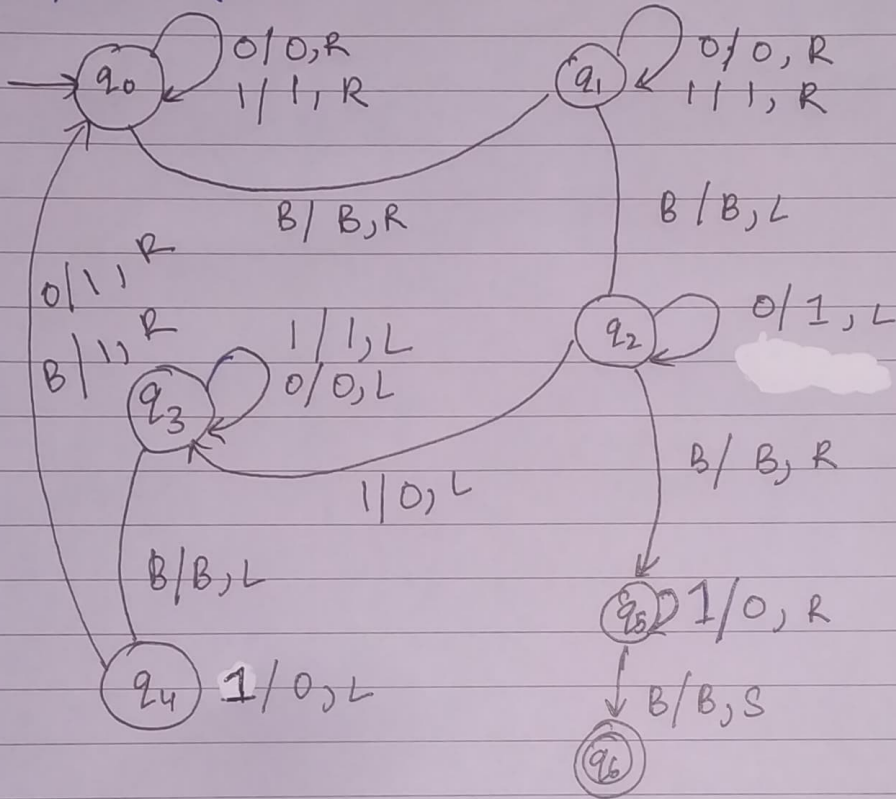 q0
0/0, R
1/1, R
q1
0/0, R
1/1, R
B/B, R
B/B, L
0/1, R
B/1, R
q2
0/1, L
q3
1/1, L
0/0, L
1/0, L
B/B, R
B/B, L
q5
1/0, R
q4
1/0, L
B/B, S
q6